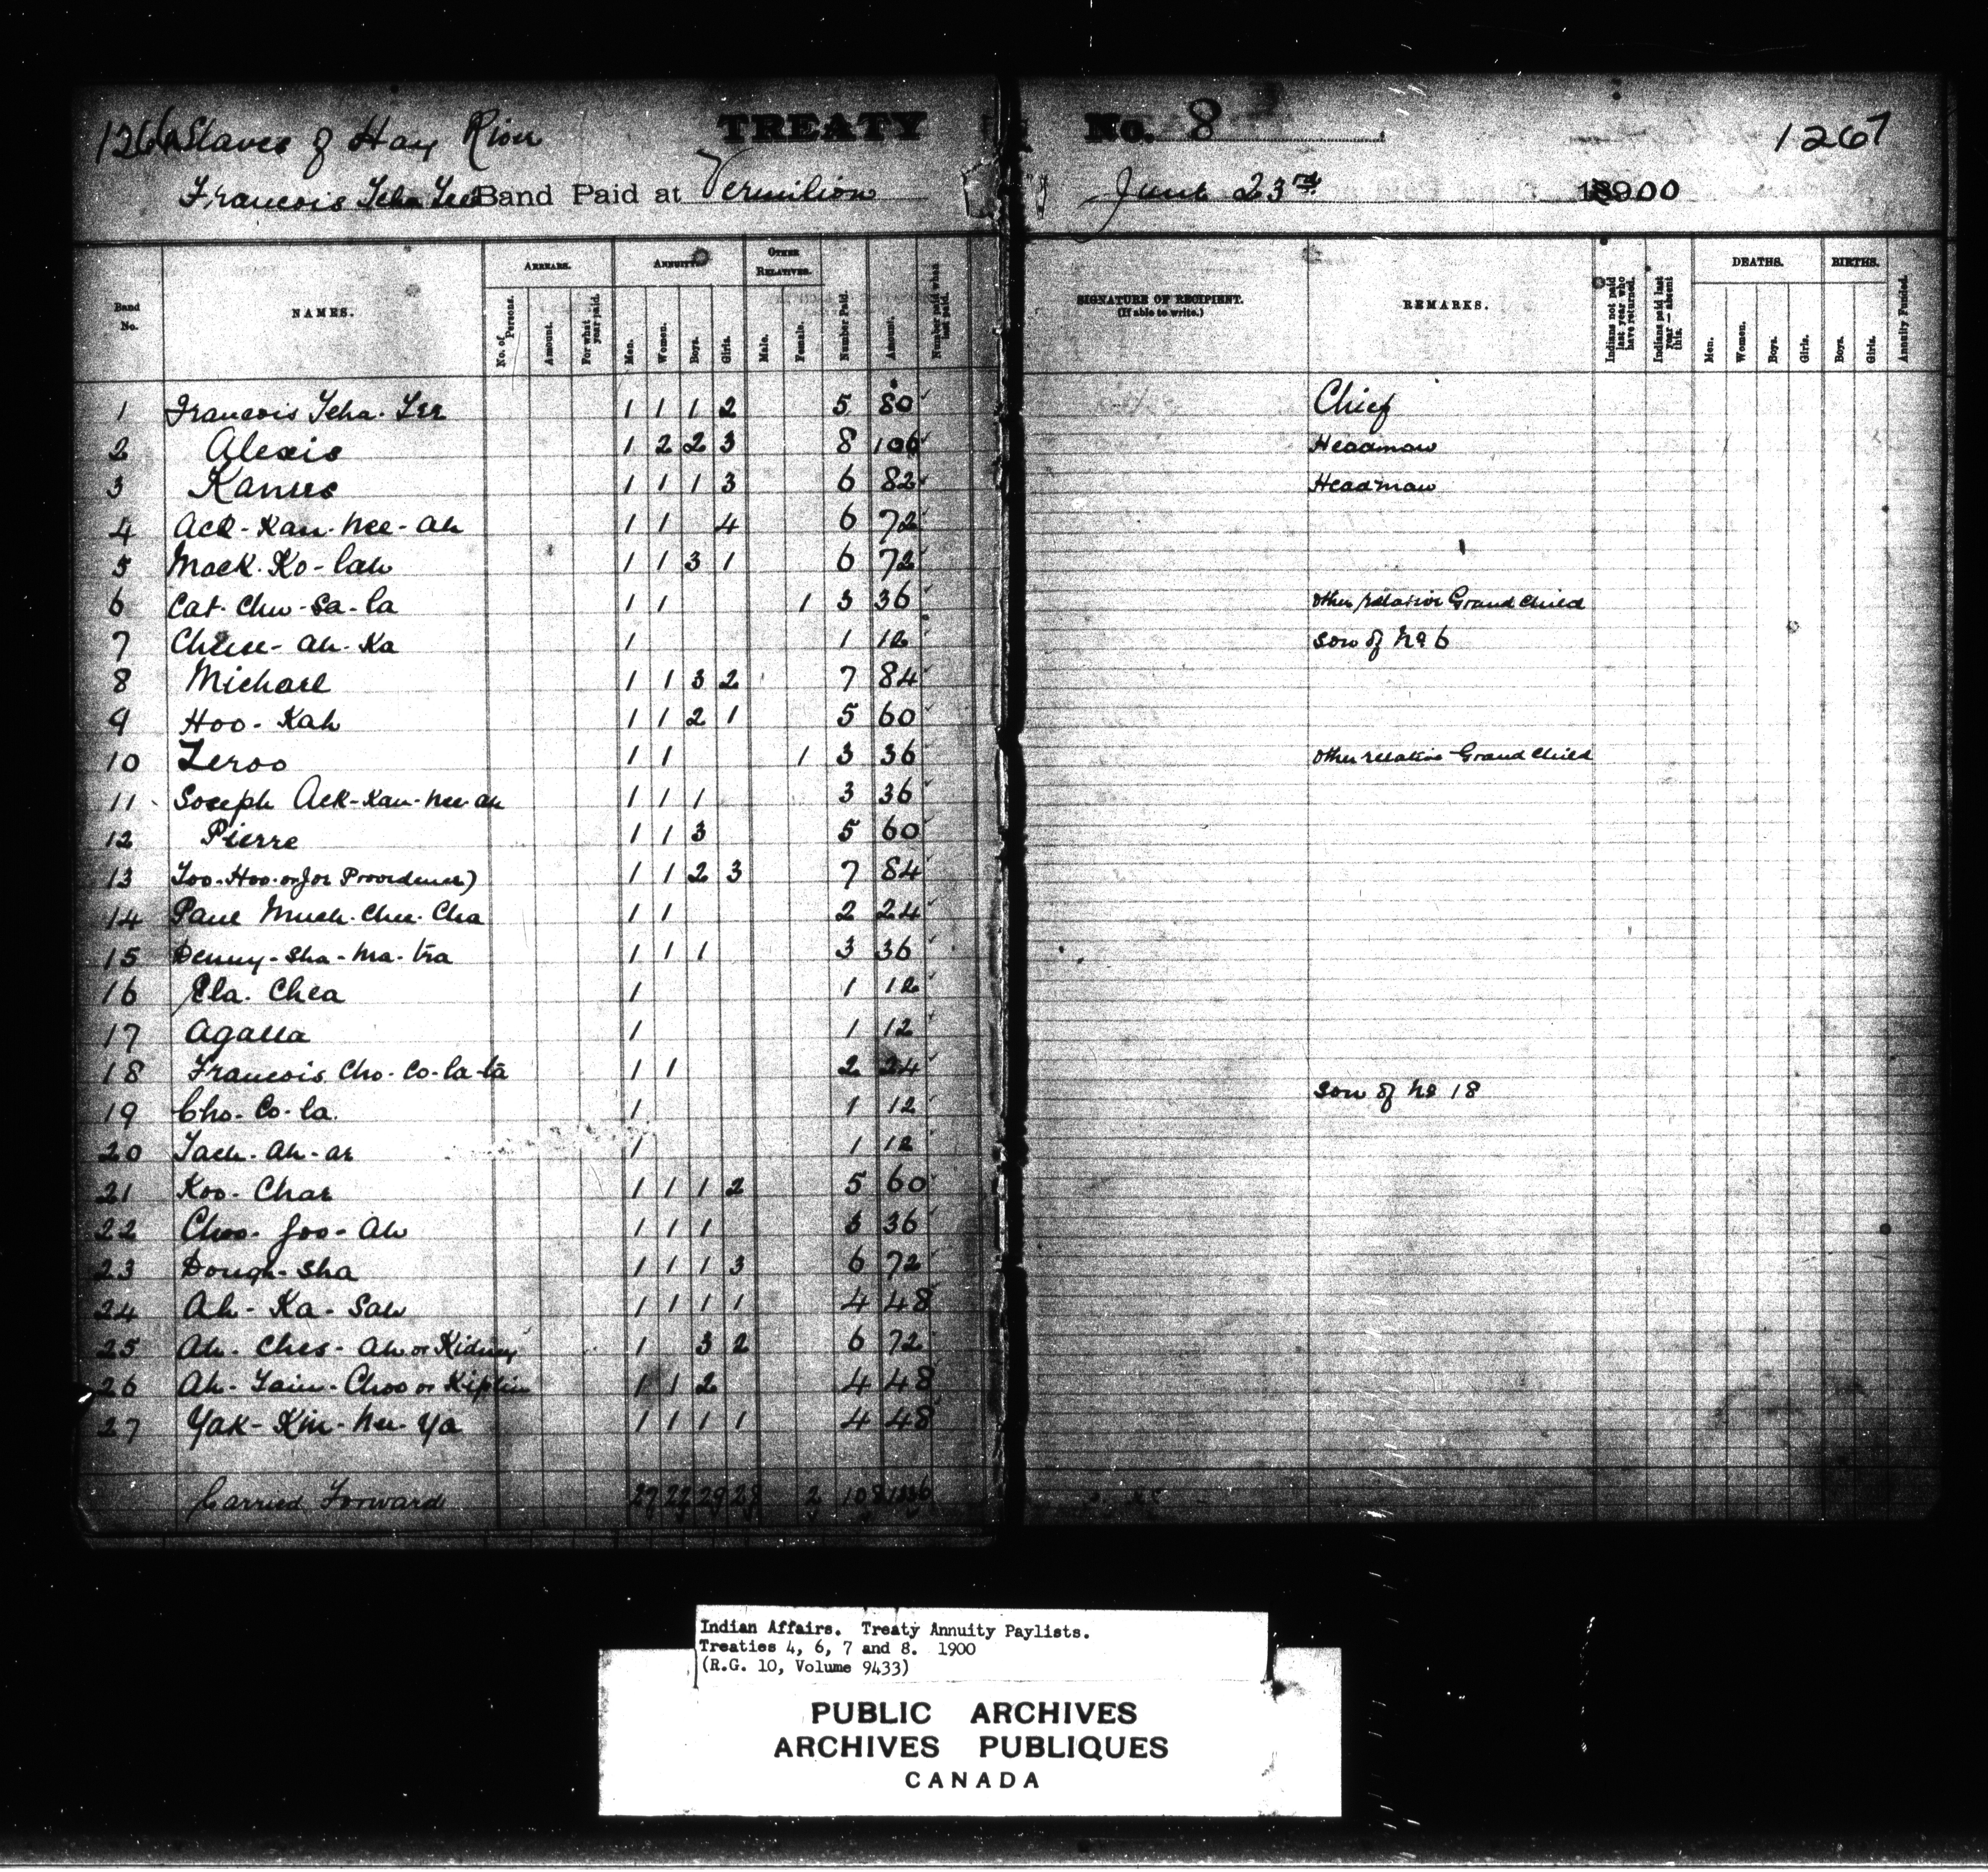 1266 Slaves of Hay River TREATY No. 8 1267
Francois Tcha Tee Band Paid at Vermilion June 23rd 1900
Band No. NAMES. ARREARS. No. of Persons. Amount. For what year paid. ANNUITY. Men. Women. Boys. Girls. OTHER RELATIVES. Male. Female. Number Paid. Amount. Number paid when last paid. SIGNATURE OF RECIPIENT. (If able to write.) REMARKS. Indians not paid last year who have returned. Indians paid last year — absent this. DEATHS. Men. Women. Boys. Girls. BIRTHS. Boys. Girls. Annuity Funded.
1 Francois Tcha-Tee 1 1 1 2 5 80 Chief
2 Alexis 1 2 2 3 8 106 Headman
3 Kanues 1 1 1 3 6 82 Headman
4 Ack-Kan-nee-ah 1 1 4 6 72
5 Mack-Ko-lah 1 1 3 1 6 72
6 Cat-Chu-Sa-la 1 1 1 3 36 other relative Grand Child
7 Cheese-ah-Ka 1 1 12 son of No 6
8 Michael 1 1 3 2 7 84
9 Hoo-Kah 1 1 2 1 5 60
10 Zeroo 1 1 1 3 36 other relative Grand Child
11 Joseph Ack-Kan-nee-ah 1 1 1 3 36
12 Pierre 1 1 3 5 60
13 Too-Hoo-or Joe Providence) 1 1 2 3 7 84
14 Paul Much-Chee-Cha 1 1 2 24
15 Denny-Sha-ma-tra 1 1 1 3 36
16 Ela-Chea 1 1 12
17 Agalla 1 1 12
18 Francois Cho-Co-la-ta 1 1 2 24
19 Cho-Co-la 1 1 12 son of No 18
20 Tach-ah-ar 1 1 12
21 Koo-Char 1 1 1 2 5 60
22 Choo-Joo-Ah 1 1 1 3 36
23 Dough-Sha 1 1 1 3 6 72
24 Ah-Ka-Sah 1 1 1 1 4 48
25 Ah-Ches-Ah or Kidney 1 3 2 6 72
26 Ah-Tain-Choo or Kiplin 1 1 2 4 48
27 Yak-Kin-nee-Ya 1 1 1 1 4 48
Carried Forward 27 22 29 28 2 108 1336
Indian Affairs. Treaty Annuity Paylists.
Treaties 4, 6, 7 and 8. 1900
(R.G. 10, Volume 9433)
PUBLIC ARCHIVES
ARCHIVES PUBLIQUES
CANADA